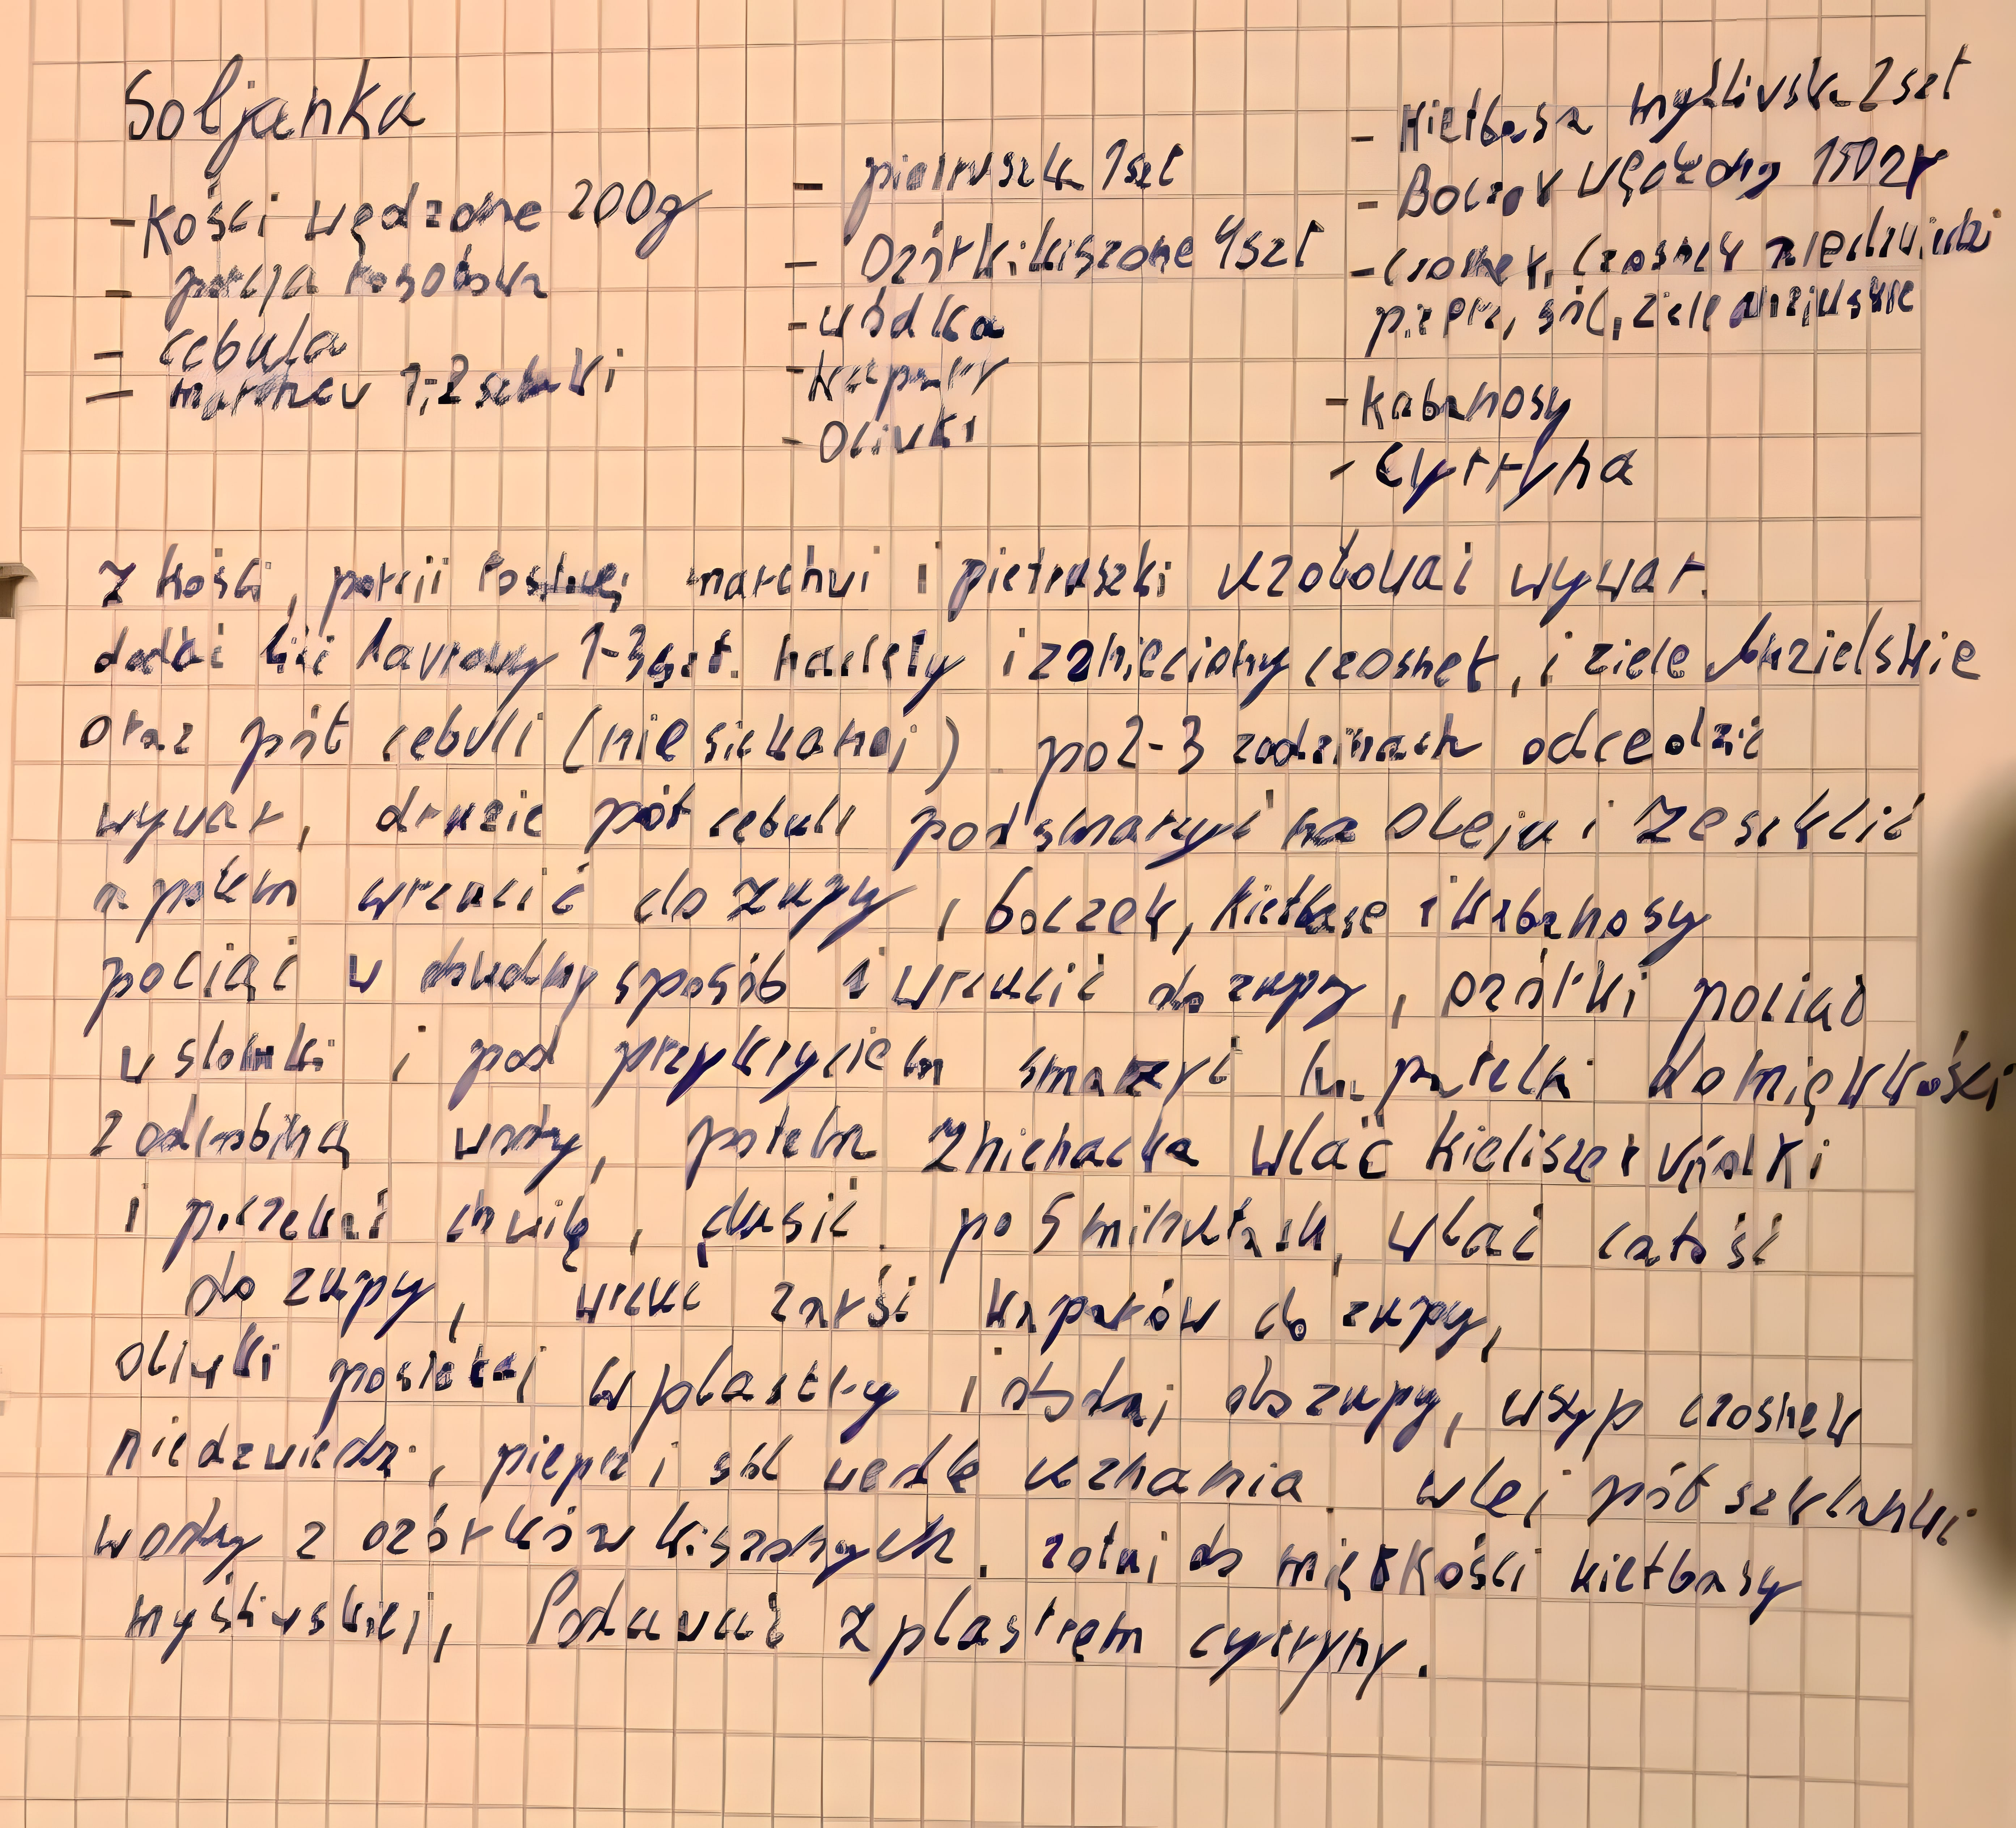 Soljanka
- Kości wędzone 200g
- porcja rosołowa
- cebula
- marchew 1,2 sztuki
- pietruszka 1szt
- Ogórki kiszone 4szt
- wódka
- kapary
- Olivki
- Kiełbasa myśliwska 2szt
- Boczek wędzony 150gr
- czosnek, czosnek niedźwiedzi
pieprz, sól, ziele angielskie
- kabanosy
- cytryna
Z kości, porcji rosłowej marchwi i pietruszki ugotować wywar.
dodać liść laurowy 1-3szt. nacięty i zgnieciony czosnek, i ziele Angielskie
oraz pół cebuli (nie siekanej). po 2-3 godzinach odcedzić
wywar, drugie pół cebuli podsmarzyć na oleju i zeszklić
a potem wrzucić do zupy, boczek, kiełbase i kabanosy
pociąć w dowolny sposób i wrzucić do zupy, ogórki pociąć
w słomki i pod przykryciem smarzyć na patelni do miękkości
z odrobiną wody, potem znienacka wlać kieliszek vódki
i poczekać chwilę, dusić. po 5 minutach, wlać całość
do zupy, wrzuć garść kaparów do zupy,
olivki posiekaj w plastry i dodaj do zupy, wsyp czosnek
niedzwiedzi, pieprz i sól wedle uznania. wlej pół szklanki
wody z ogórków kiszonych. gotuj do miękkości kiełbasy
myśliwskiej, Podawać z plastrem cytryny.